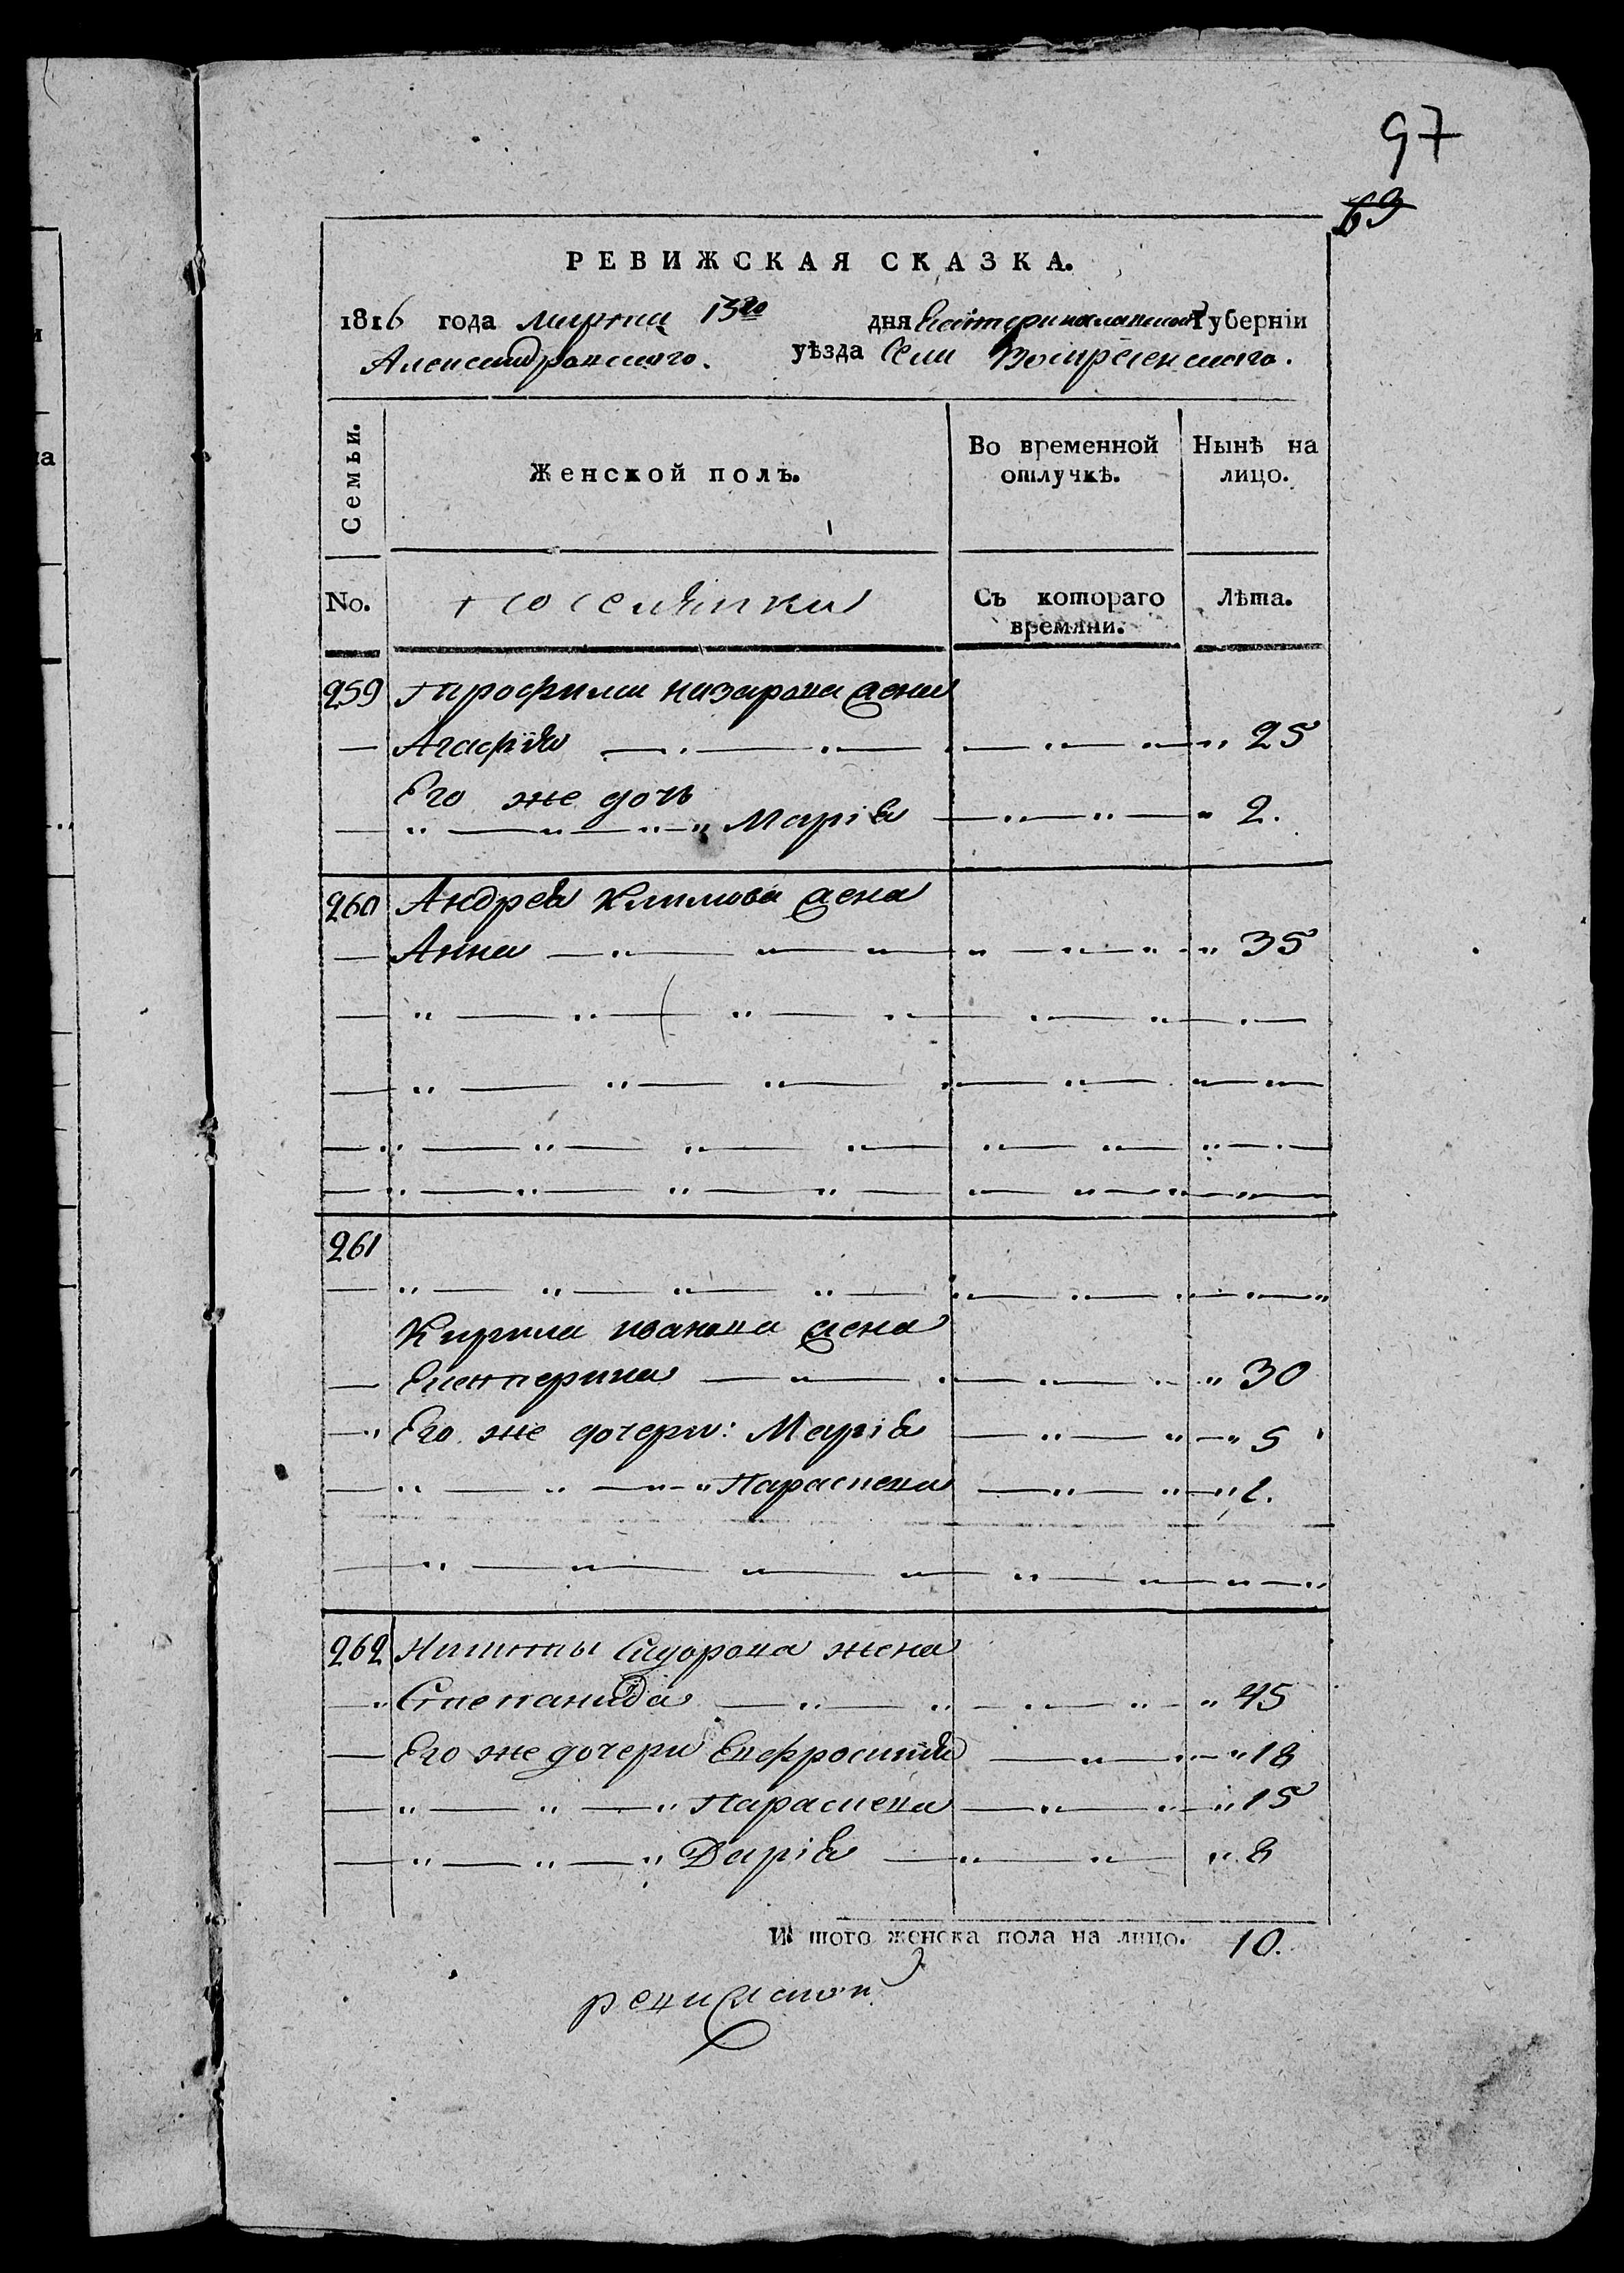 97
69
РЕВИЖСКАЯ СКАЗКА.
1816 года марта 13го дня Екатеринославской Губернiи
Александровского. уѣзда Села Воскресенского.
Семьи.
Женской полъ.
Во временной отлучкѣ.
Нынѣ на лицо.
No.
поселянки
Съ котораго времяни.
Лѣта.
259 Трофима назарова жена
Агафiя 25
Его же дочь
Марiя 2.
260 Андрея Климова жена
Анна 35
261
Кирила иванова жена
Екатерина 30
Его же дочери: Марiя 5
Параскева 2.
262 Никиты Сидорова жена
Степанида 45
Его же дочери Евфросинiя 18
Параскева 15
Дарiя 8
И того женска пола на лицо. 10.